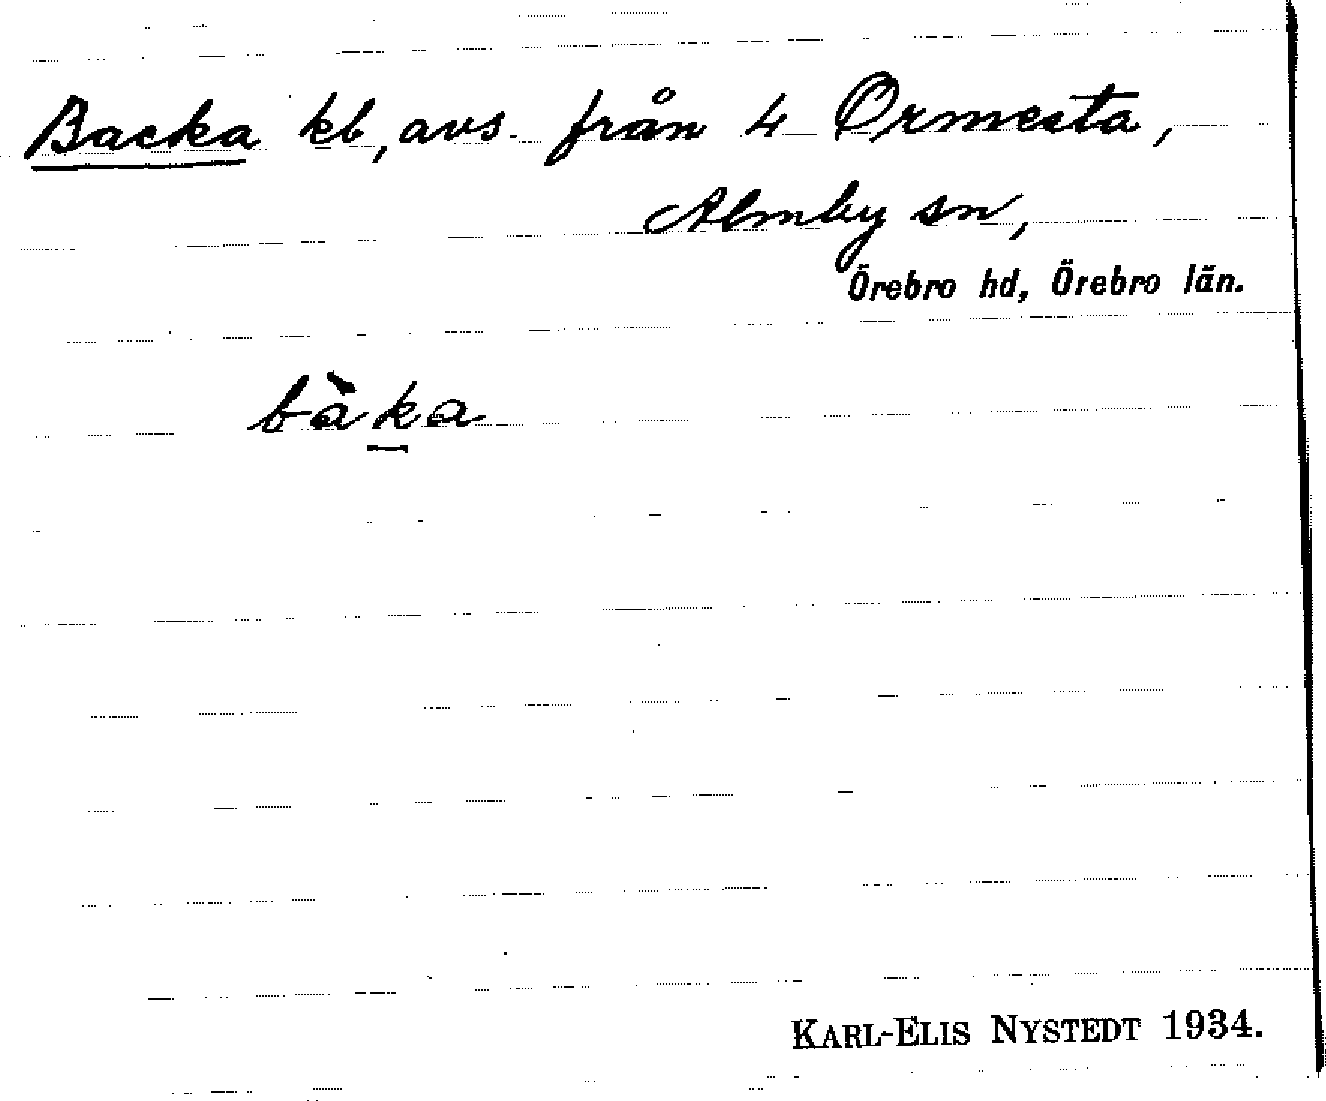 Backa kb, avs. från 4 Ormesta,
Almby sn,
Örebro hd, Örebro län.
bàka
KARL-ELIS NYSTEDT 1934.